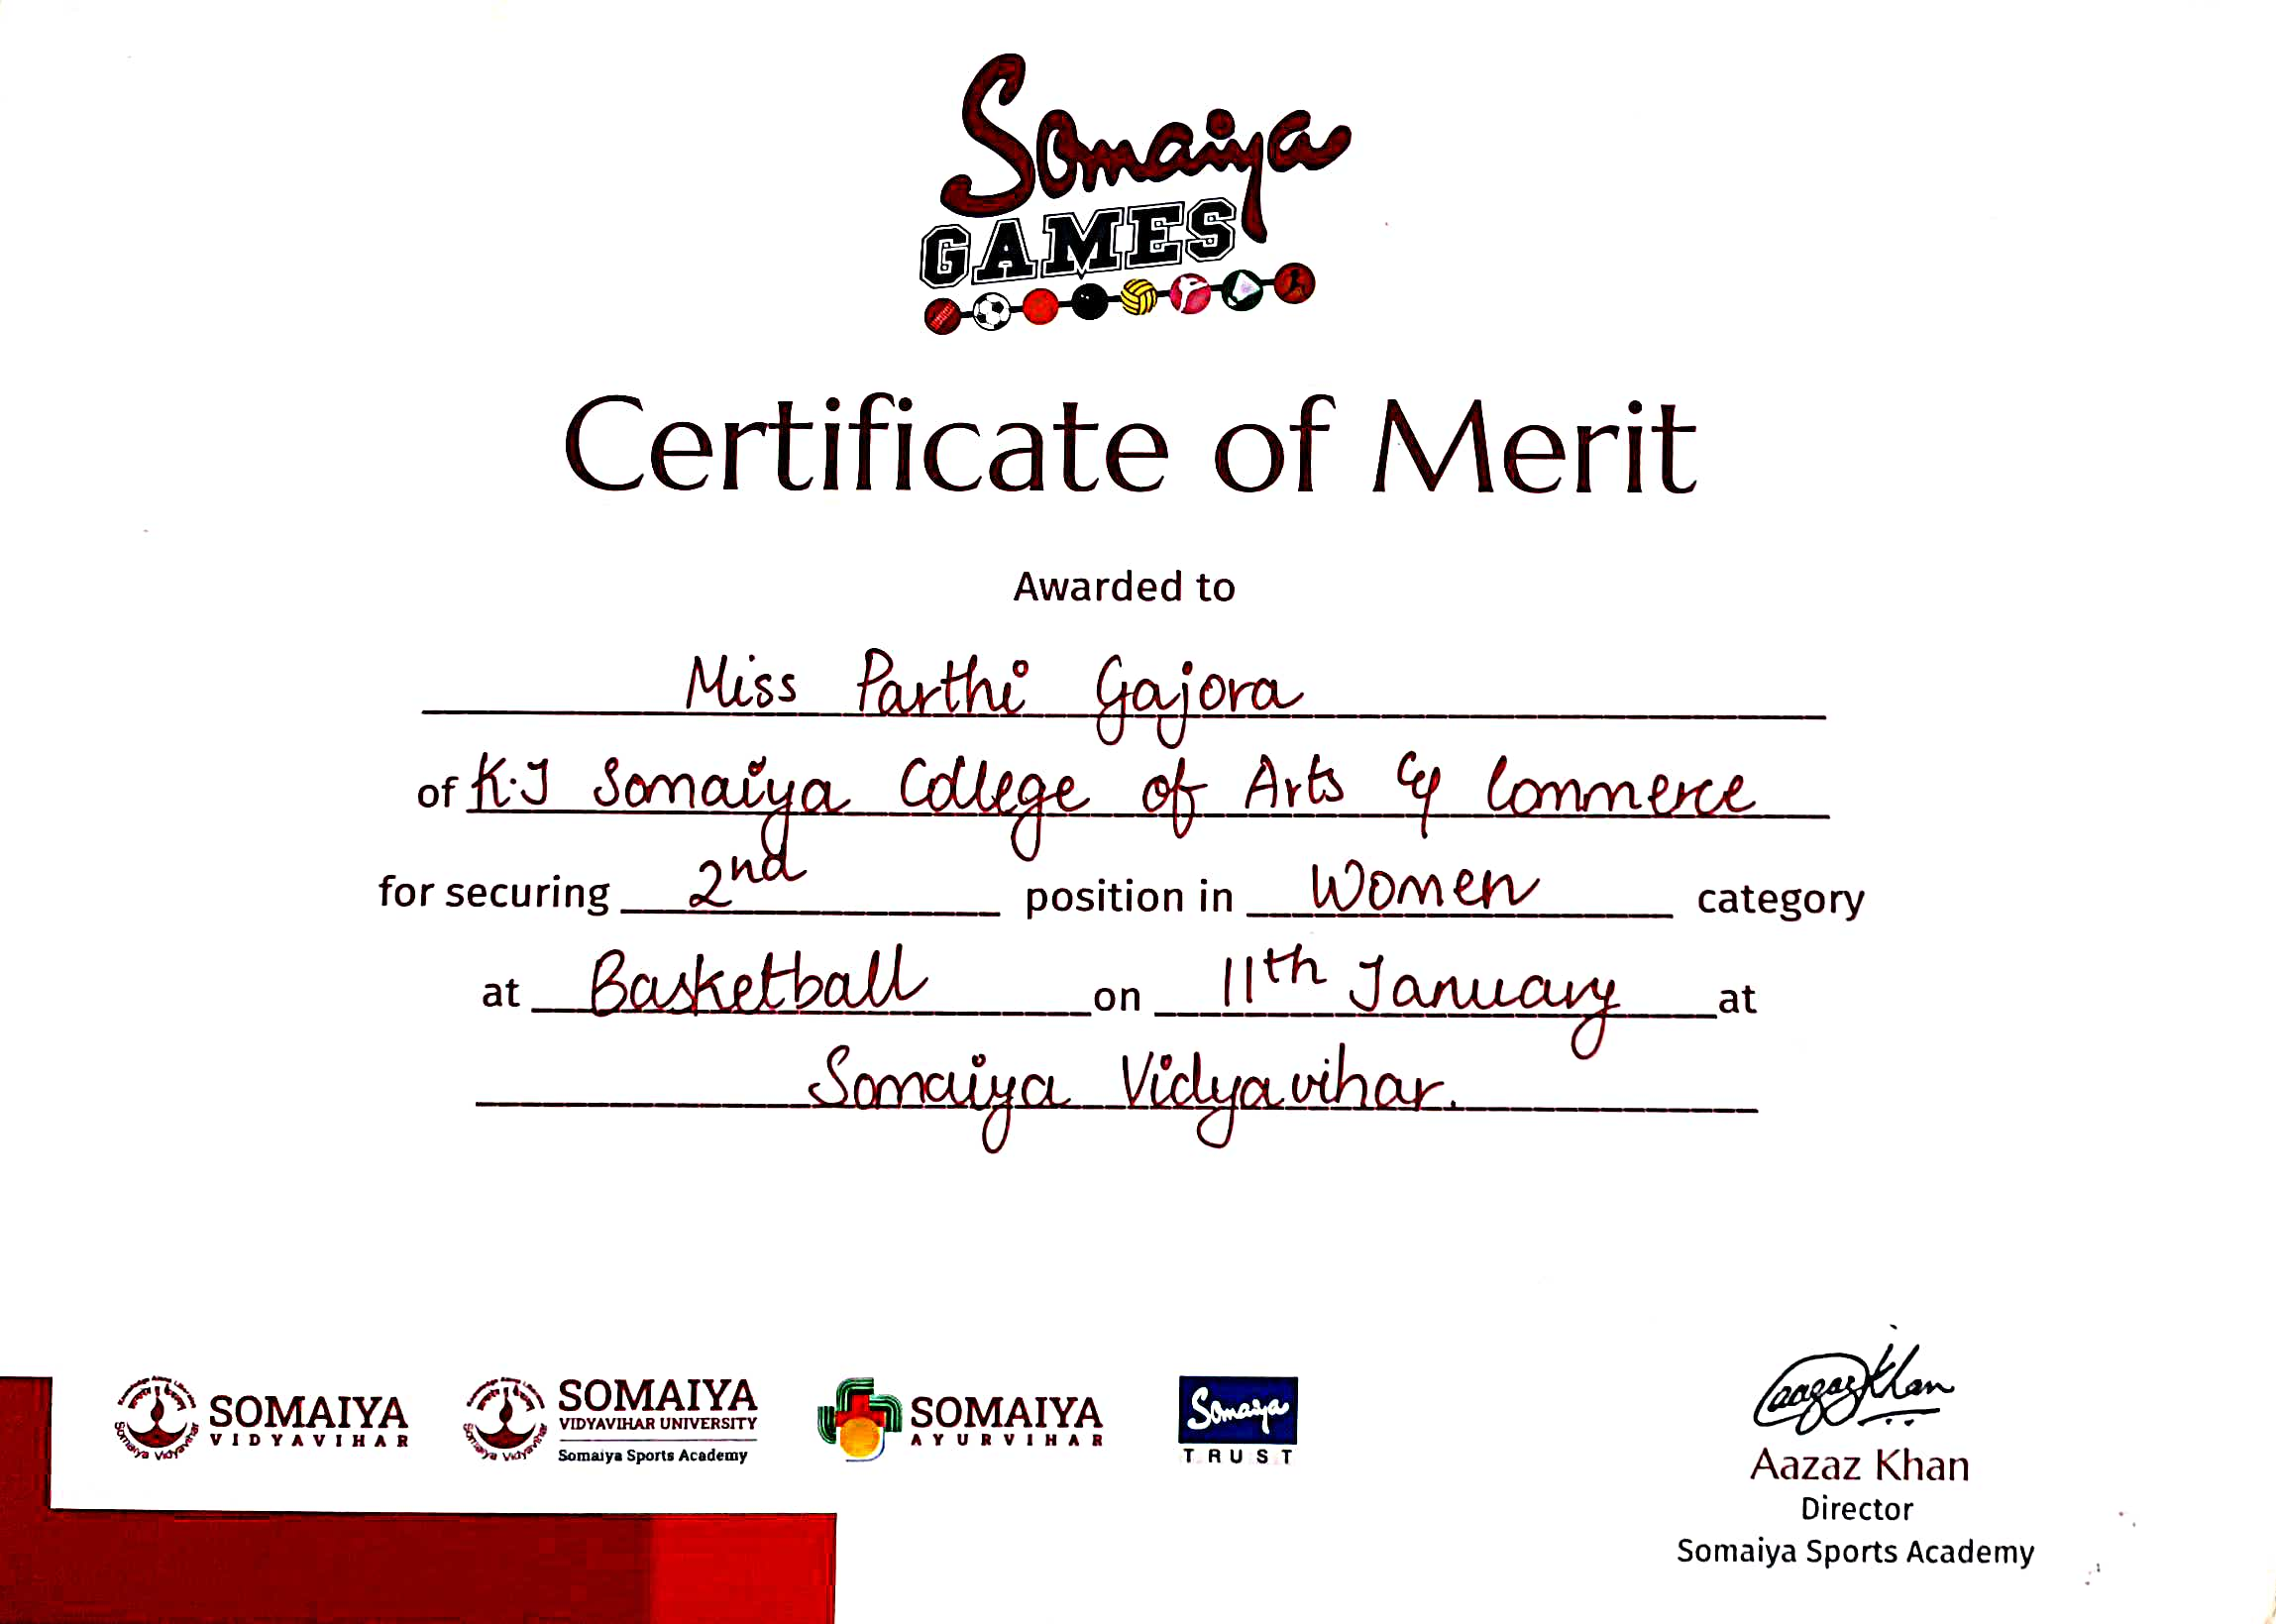 Somaiya
GAMES
Certificate of Merit
Awarded to
Miss Parthi Gajora
of K.J Somaiya College of Arts & Commerce
for securing 2nd position in Women category
at Basketball on 11th January at
Somaiya Vidyavihar.
SOMAIYA
VIDYAVIHAR
Somaiya Vidyavihar
SOMAIYA
VIDYAVIHAR UNIVERSITY
Somaiya Sports Academy
SOMAIYA
AYURVIHAR
Somaiya
TRUST
Aazaz Khan
Aazaz Khan
Director
Somaiya Sports Academy